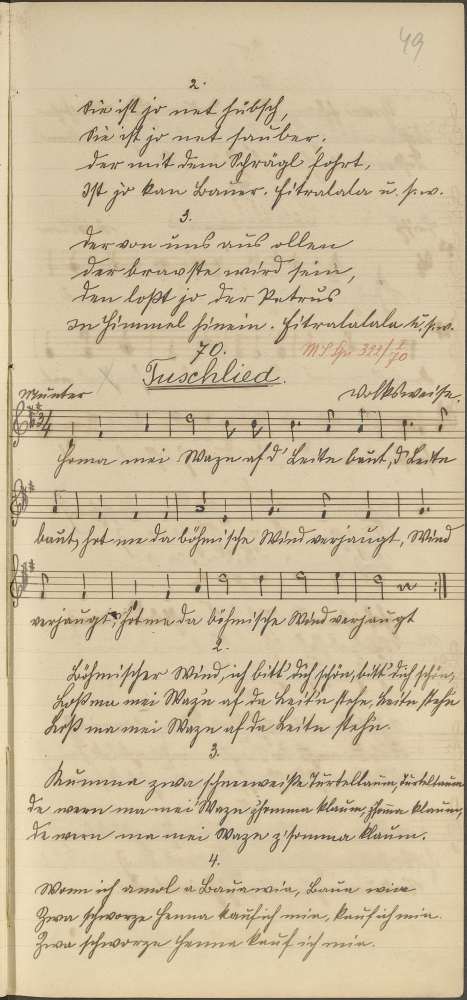 49
2.
Sie ist jo net hübsch,
Sie ist jo net sauber,
der mit dem Schrägl fohrt,
Ist jo kan Bauer. Hitralala u. s. w.
3.
Der von uns aus ollen
der bravste wird sein,
den loßt jo der Petrus
in Himmel hinein. Hitralalala u. s. w.
70.
Tuschlied.
Munter
Volksweise.
3/4
Homa mei Wazn af d' Leitn baut, d' Leitn
baut, hot ma da böhmische Wind verjaugt, Wind
verjaugt, hot ma da böhmische Wind verjaugt
2.
Böhmischer Wind, ich bitt' dich schön, bitt' dich schön,
Loß ma mei Waz'n af da Leit'n stehn, Leitn stehn
Loß ma mei Wazn af da Leitn stehn.
3.
Kumma zwa schneeweiße Turteltaum, Turteltaum
de wern ma mei Wazn z'somma klaum, z'somma klaum,
De wern ma mei Wazn z'somma klaum.
4.
Wonn ich amol a Baua wia, Baua wia
Zwa schworze Henna kauf ich mia, kauf ich mia.
Zwa schworze Henna kauf ich mia.